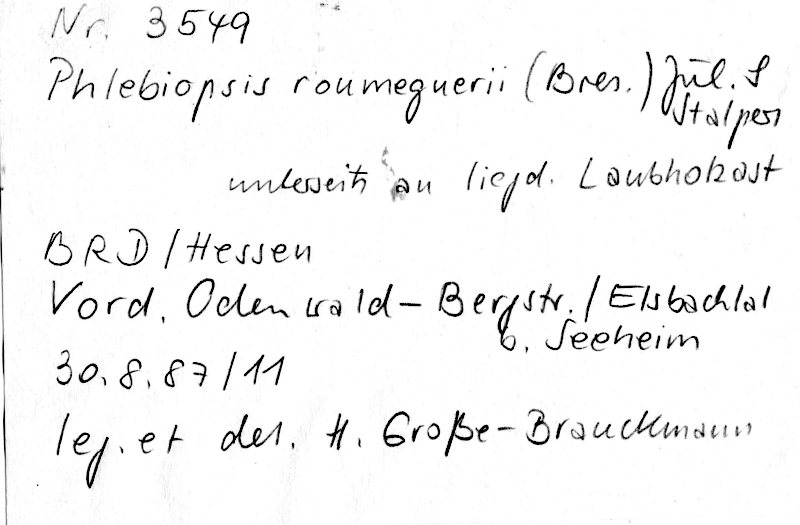 Nr. 3549
Phlebiopsis roumeguerii (Bres.) Jül. &
Stalpers
unterseits an liegd. Laubholzast
BRD/Hessen
Vord. Odenwald-Bergstr./Elsbachtal
b. Seeheim
30.8.87/11
leg. et det. H. Große-Brauckmann